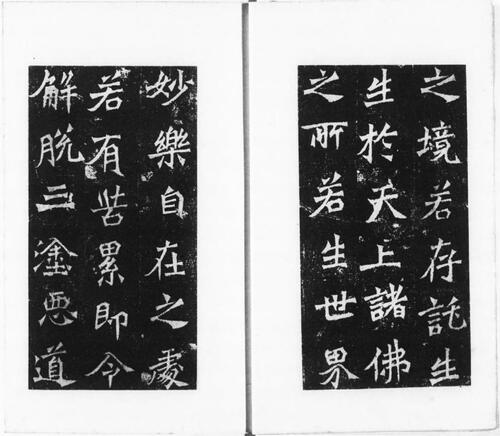 之境若存託生
生於天上諸佛
之所若生世界
妙樂自在之處
若有苦累即令
解脱三塗惡道